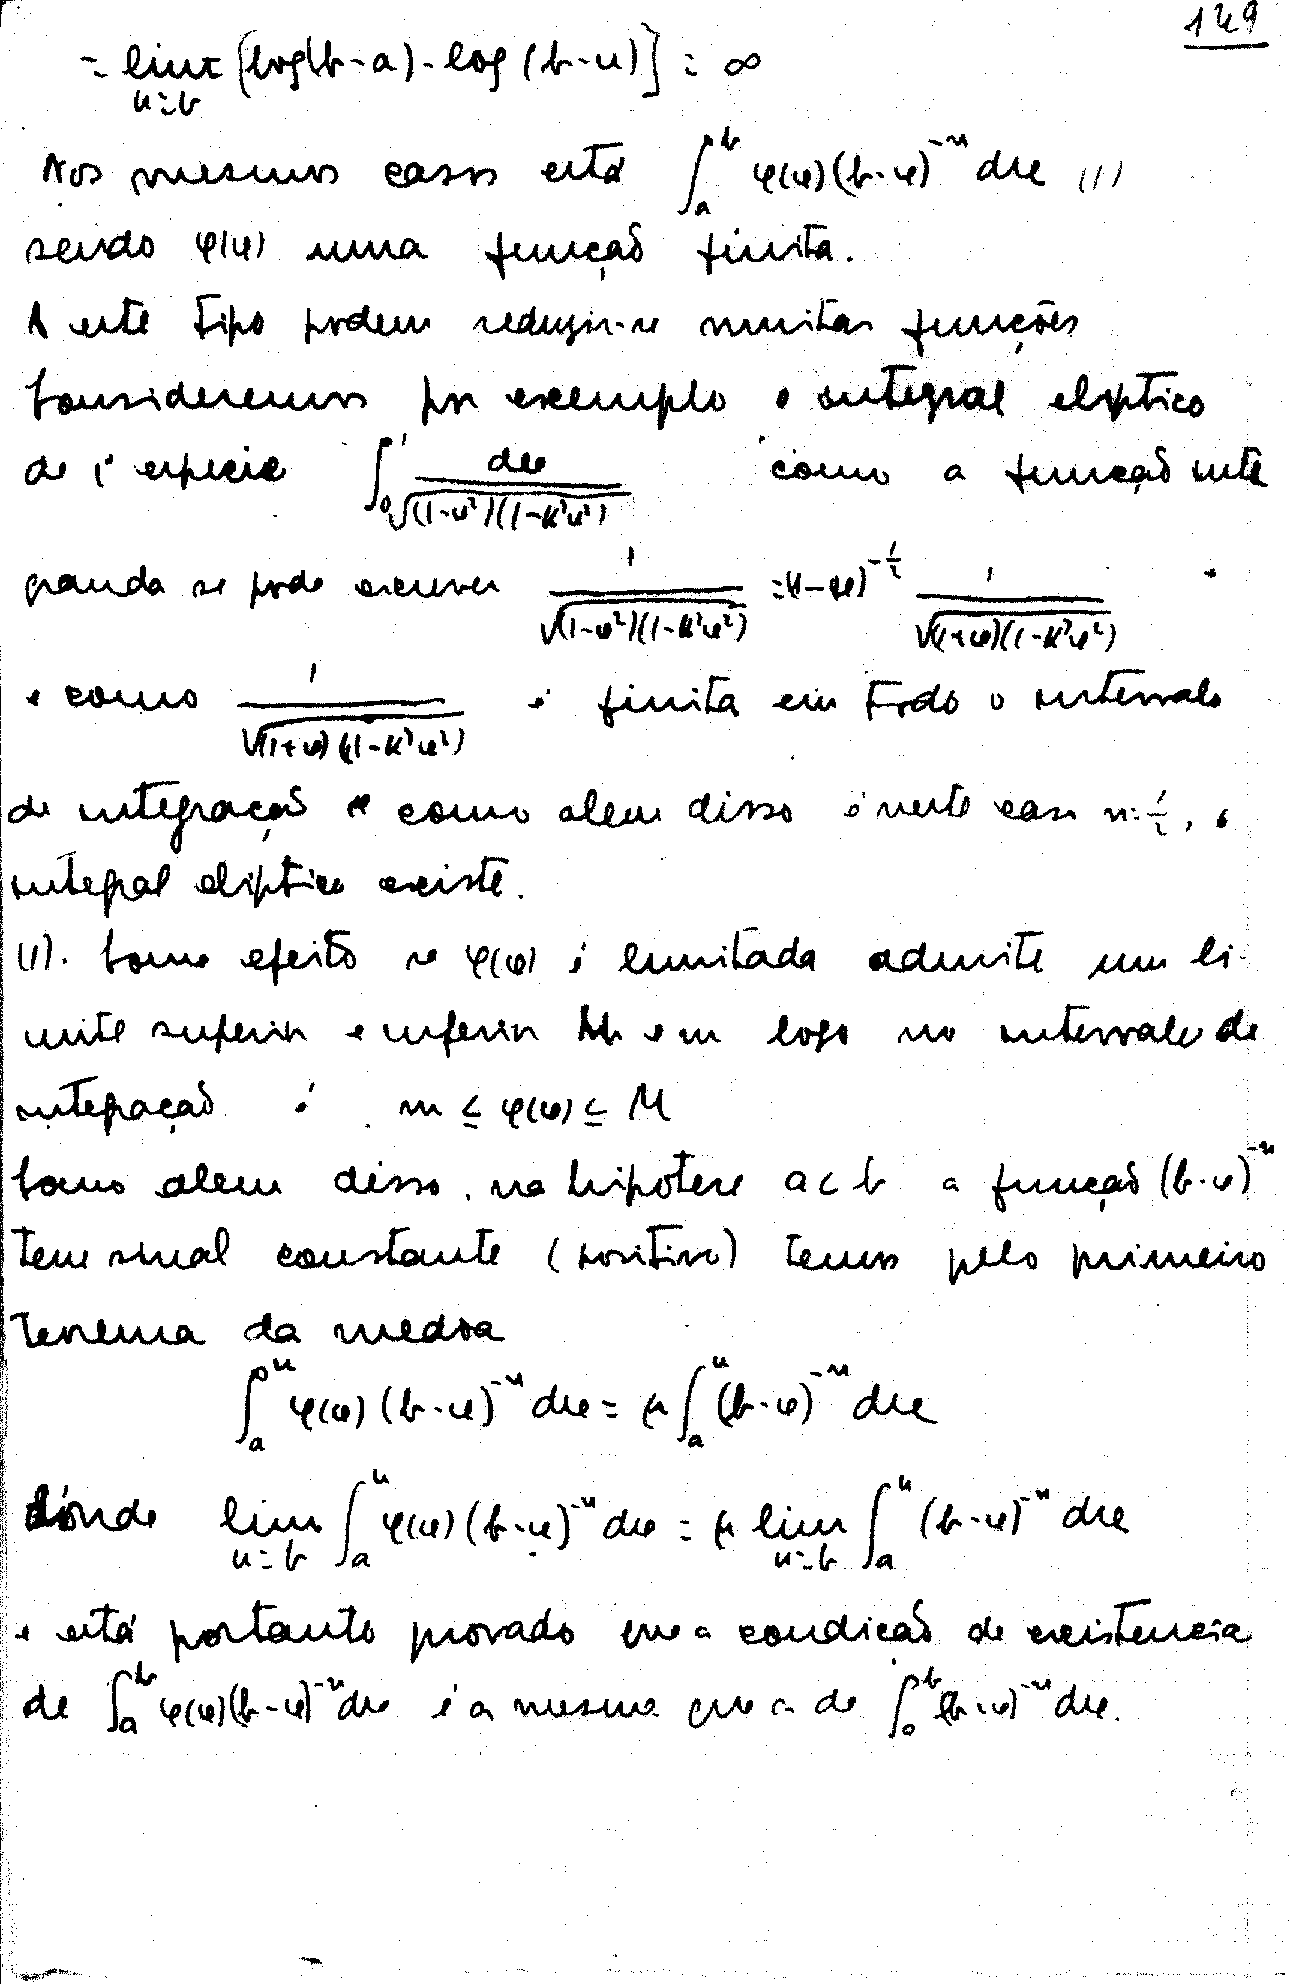 149
= lim [log(b-a) - log(b-u)] = ∞
u=b
Nos mesmos casos está ∫_a^b φ(x)(b-x)^{-n} dx (1)
sendo φ(x) uma função finita.
A este tipo podem reduzir-se muitas funções
Consideremos por exemplo o integral elíptico
de 1ª especie ∫_0^1 dx / √((1-x²)(1-k²x²)) como a função inte
granda se pode escrever 1/√((1-x²)(1-k²x²)) = (1-x)^{-1/2} 1/√((1+x)(1-k²x²))
e como 1/√((1+x)(1-k²x²)) é finita em todo o intervalo
de integração e como alem disso é neste caso n=1/2, o
integral eliptico existe.
(1). Com efeito se φ(x) é limitada admite um li-
mite superior e inferior M e m logo no intervalo de
integração é m ≤ φ(x) ≤ M
Como alem disso, na hipotese a < b a função (b-x)^{-n}
tem sinal constante (positivo) temos pelo primeiro
teorema da media
∫_a^u φ(x)(b-x)^{-n} dx = μ ∫_a^u (b-x)^{-n} dx
donde lim_{u=b} ∫_a^u φ(x)(b-x)^{-n} dx = μ lim_{u=b} ∫_a^u (b-x)^{-n} dx
e está portanto provado que a condicão de existencia
de ∫_a^b φ(x)(b-x)^{-n} dx é a mesma que a de ∫_a^b (b-x)^{-n} dx.